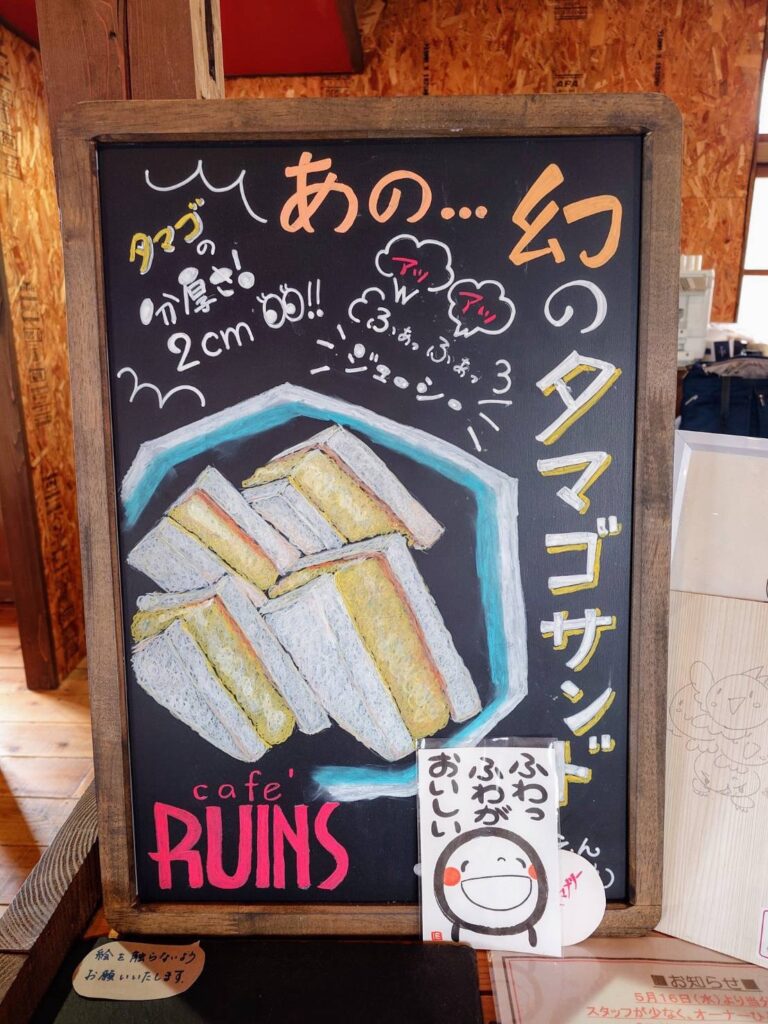 あの…
幻のタマゴサンド
タマゴの
分厚さ!
2cm !!
アツ
アツ
ふあっふあっ
ジューシー
café
RUINS
ふわっ
ふわが
おいしい
絵を触らないよう
お願いいたします。
■お知らせ■
5月16日(水)より当分
スタッフが少なく、オーナーひ